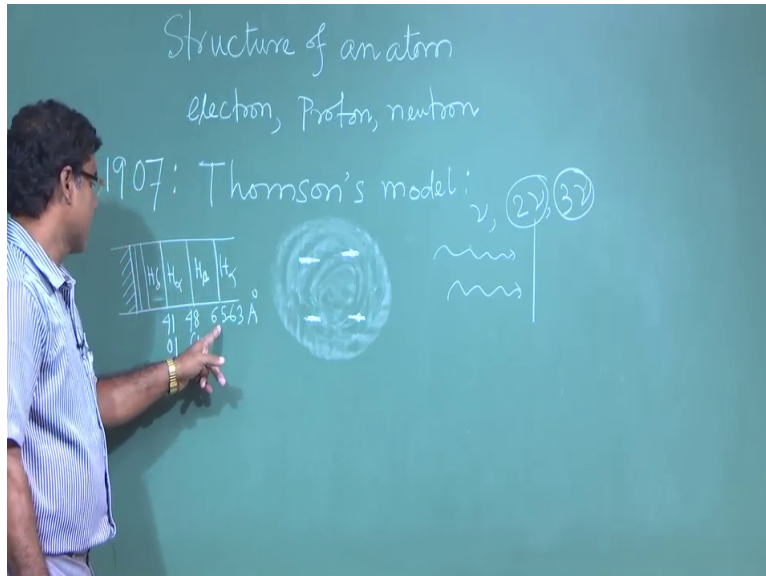 Structure of an atom
electron, Proton, neutron
1907: Thomson's model:
ν, 2ν, 3ν
Hδ Hα Hβ Hα
41 48 6563 Å
01